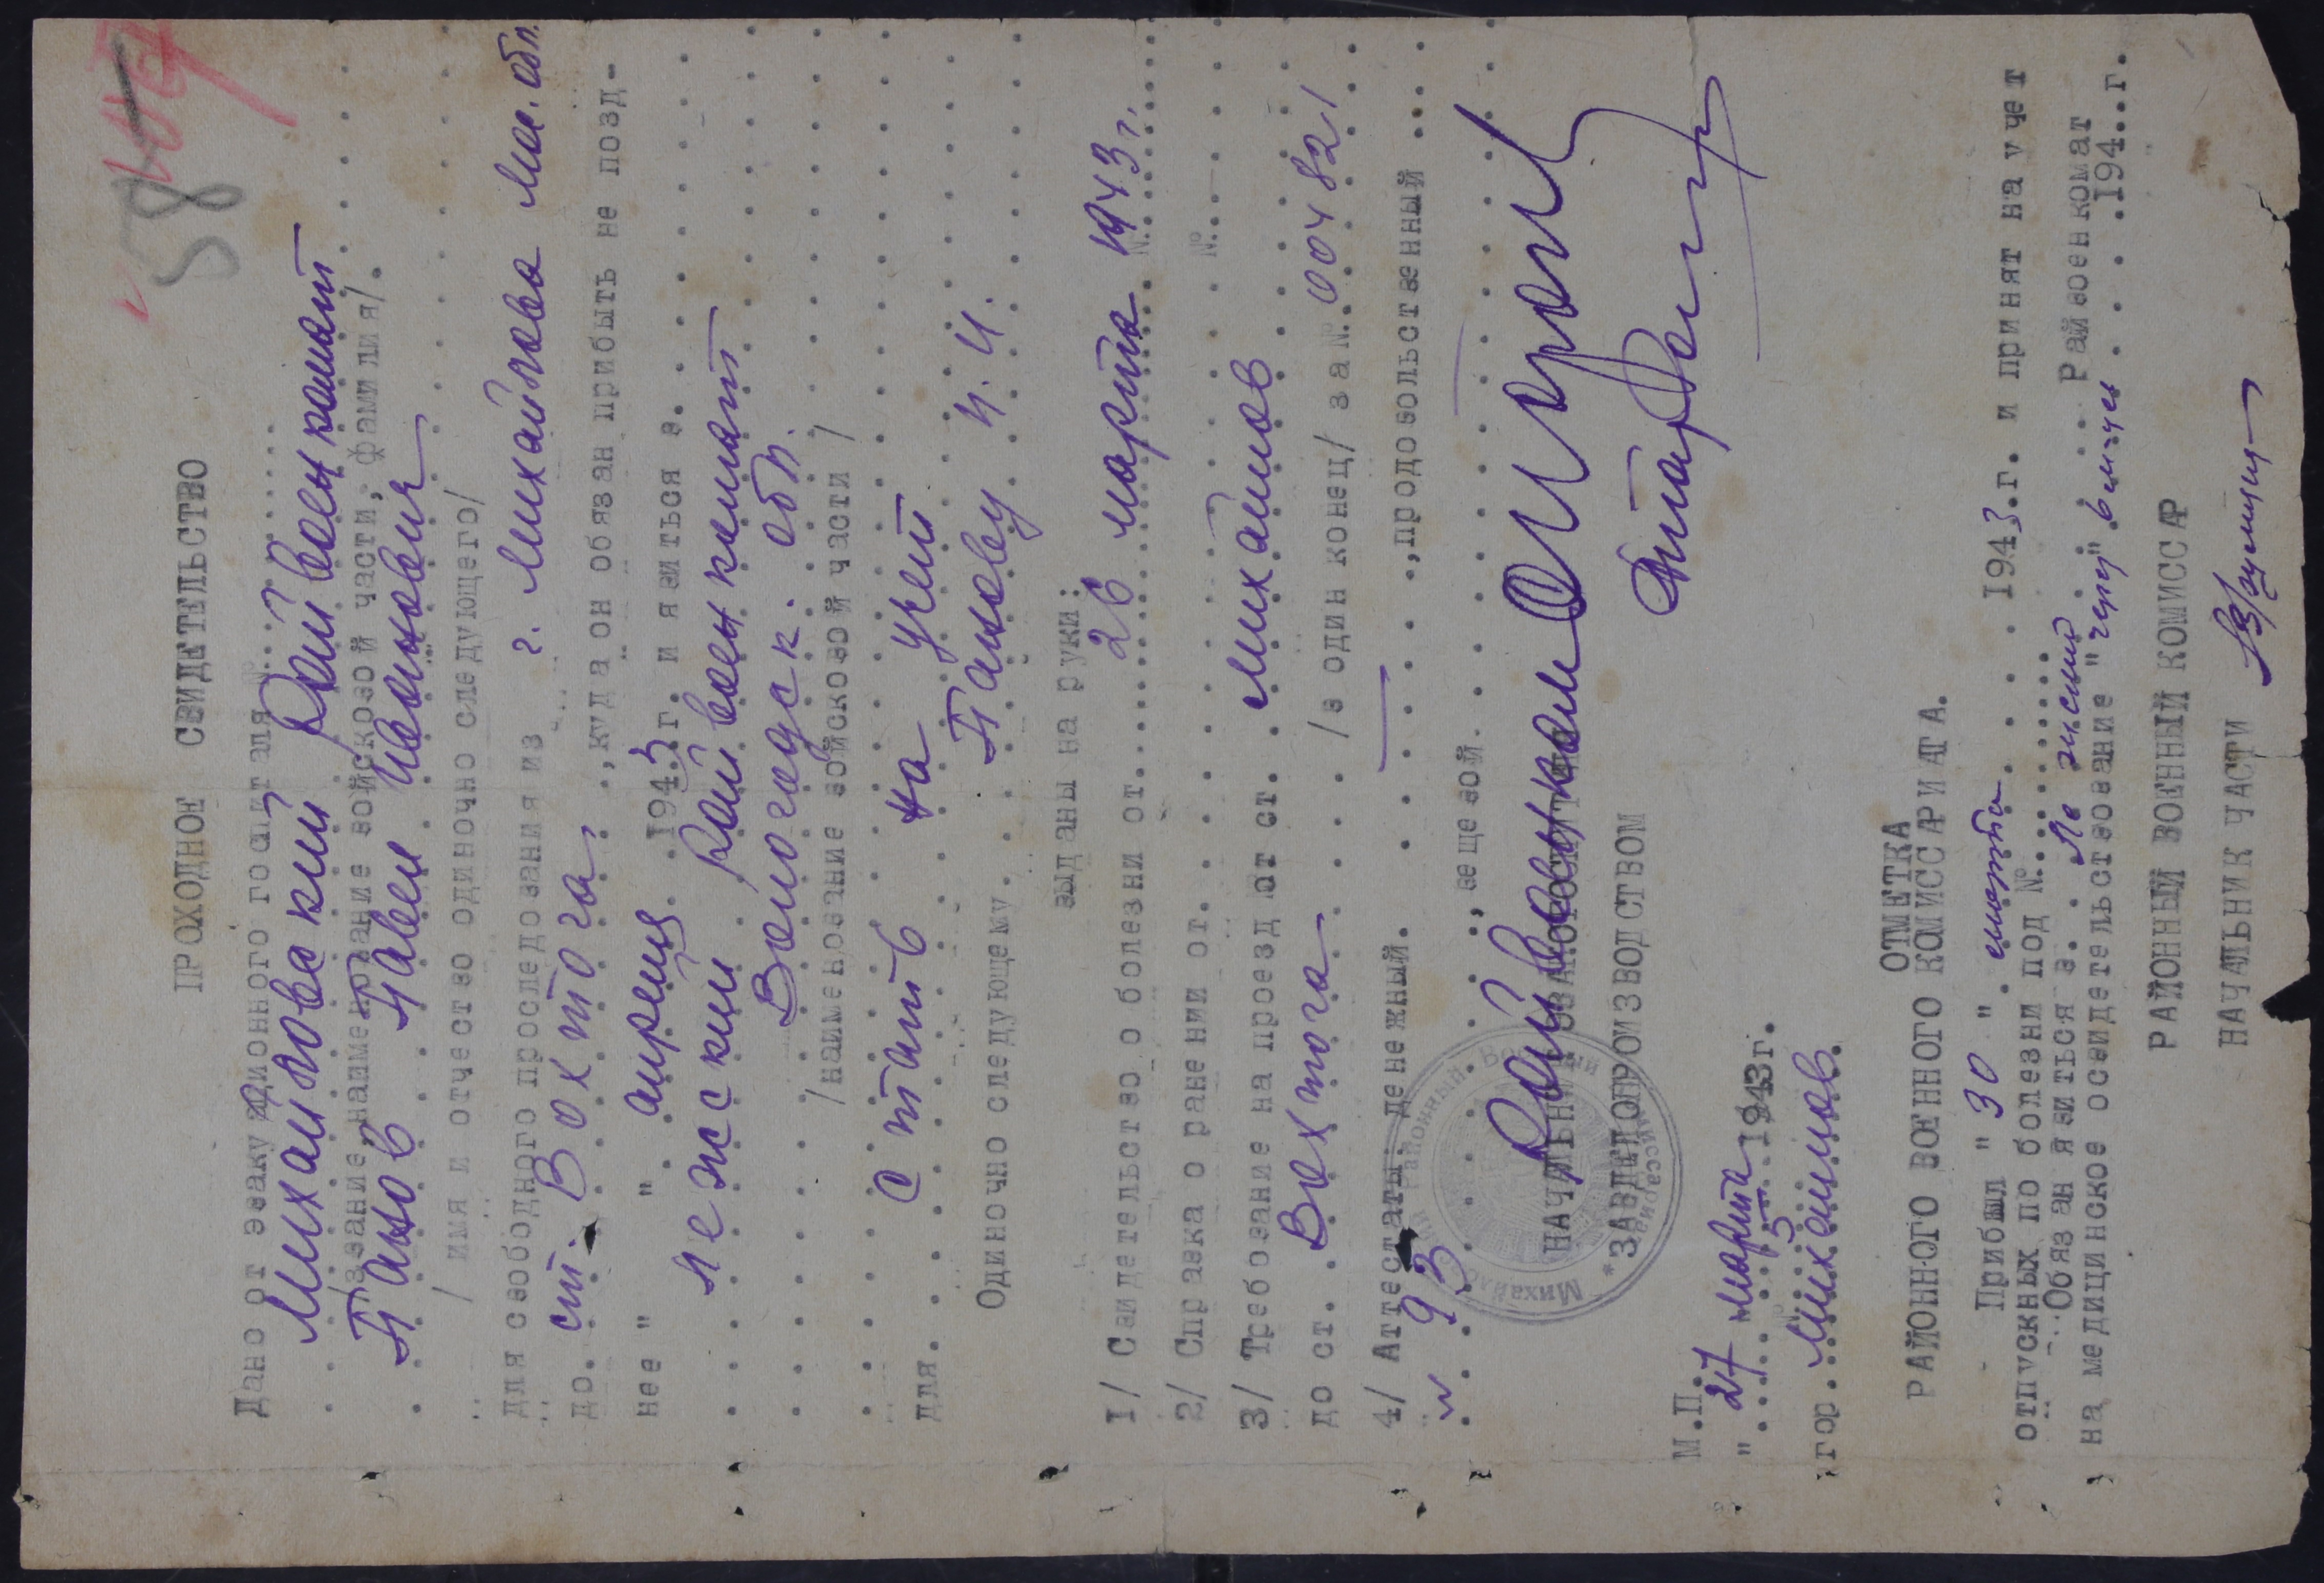 58
ПРОХОДНОЕ СВИДЕТЕЛЬСТВО
Дано от эвакуационного госпиталя
Михайловский Райвоенкомат
/звание, наименование войсковой части, фамилия/.
Панов Павел Иванович
/ имя и отчество одиночно следующего/
для свободного проследования из г. Михайлова Мос. обл.
до. ст. Вохтога, ,куда он обязан прибыть не позд-
нее " " апреля 1943 г. и явиться в.
Лежский Райвоенкомат
Вологодск. обл.
/наименование войсковой части /
для. стать на учет
Одиночно следующему. Панову И.И.
выданы на руки:
1/ Свидетельство о болезни от. 26 марта 1943 г. №
2/ Справка о ранении от. №
3/ Требование на проезд от ст. Михайлов
до ст. Вохтога /в один конец/ за № 004821
4/ Аттестаты: денежный. ,продовольственный
№ 93 , вещевой
НАЧАЛЬНИК ЭВАКОГОСПИТАЛЯ
Райвоенком
ЗАВДЕЛОПРОИЗВОДСТВОМ
М.П.
" 27 марта 1943г.
гор. Михайлов.
ОТМЕТКА
РАЙОННОГО ВОЕННОГО КОМИССАРИАТА.
Прибыл " 30 " марта 1943.г. и принят на учет
отпускных по болезни под №
Обязан явиться в. Райвоенкомат
на медицинское освидетельствование "через" 6 м-цев 194..г.
РАЙОННЫЙ ВОЕННЫЙ КОМИССАР
НАЧАЛЬНИК ЧАСТИ